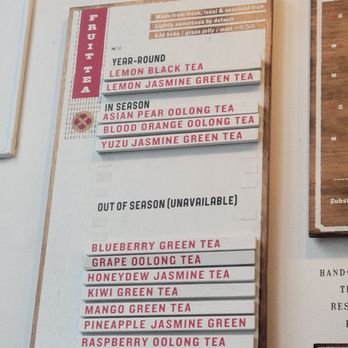 FRUIT TEA
Made from fresh, local & seasonal fruit
Lightly sweetened by default
Add boba / grass jelly / mint +0.50
YEAR-ROUND
LEMON BLACK TEA
LEMON JASMINE GREEN TEA
IN SEASON
ASIAN PEAR OOLONG TEA
BLOOD ORANGE OOLONG TEA
YUZU JASMINE GREEN TEA
OUT OF SEASON (UNAVAILABLE)
BLUEBERRY GREEN TEA
GRAPE OOLONG TEA
HONEYDEW JASMINE TEA
KIWI GREEN TEA
MANGO GREEN TEA
PINEAPPLE JASMINE GREEN
RASPBERRY OOLONG TEA
Subst
HAND-
T
RES